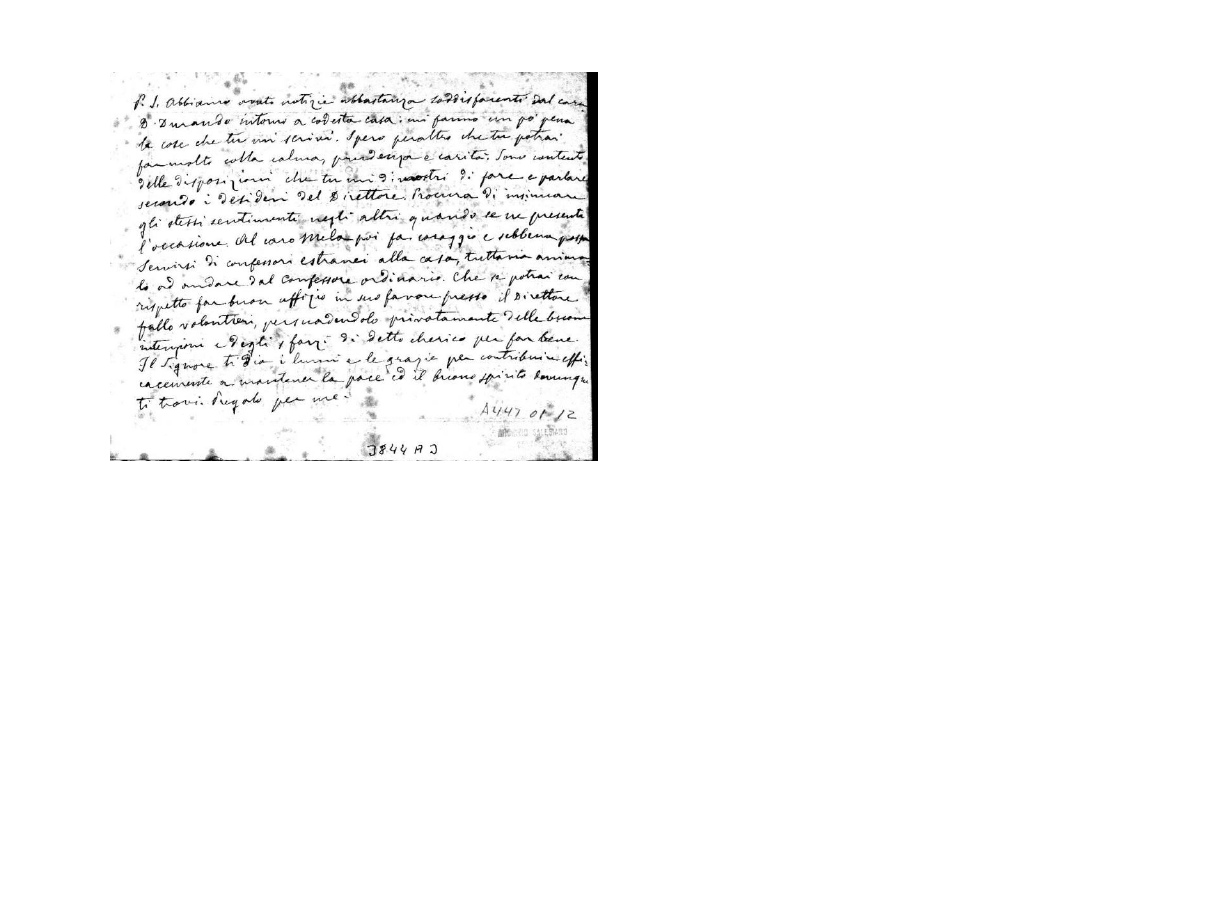 P. S. Abbiamo avuto notizie abbastanza soddisfacenti dal caro
D. Durando intorno a codesta casa: mi fanno un po' pena
le cose che tu mi scrivi. Spero peraltro che tu potrai
far molto colla calma, prudenza e carità. Sono contento
delle disposizioni che tu mi dimostri di fare e parlare
secondo i desideri del Direttore. Procura di insinuare
gli stessi sentimenti negli altri quando se ne presenti
l'occasione. Al caro Mela poi fa coraggio e sebbene possa
servirsi di confessori estranei alla casa, tuttavia anima-
lo ad andare dal Confessore ordinario. Che se potrai con
rispetto far buon uffizio in suo favore presso il Direttore
fallo volontieri, persuadendolo privatamente delle buone
intenzioni e degli sforzi di detto cherico per far bene.
Il Signore ti dia i lumi e le grazie per contribuire effi-
cacemente a mantener la pace ed il buono spirito dovunque
ti trovi. Pregalo per me.
A447 01 12
3844 A 3